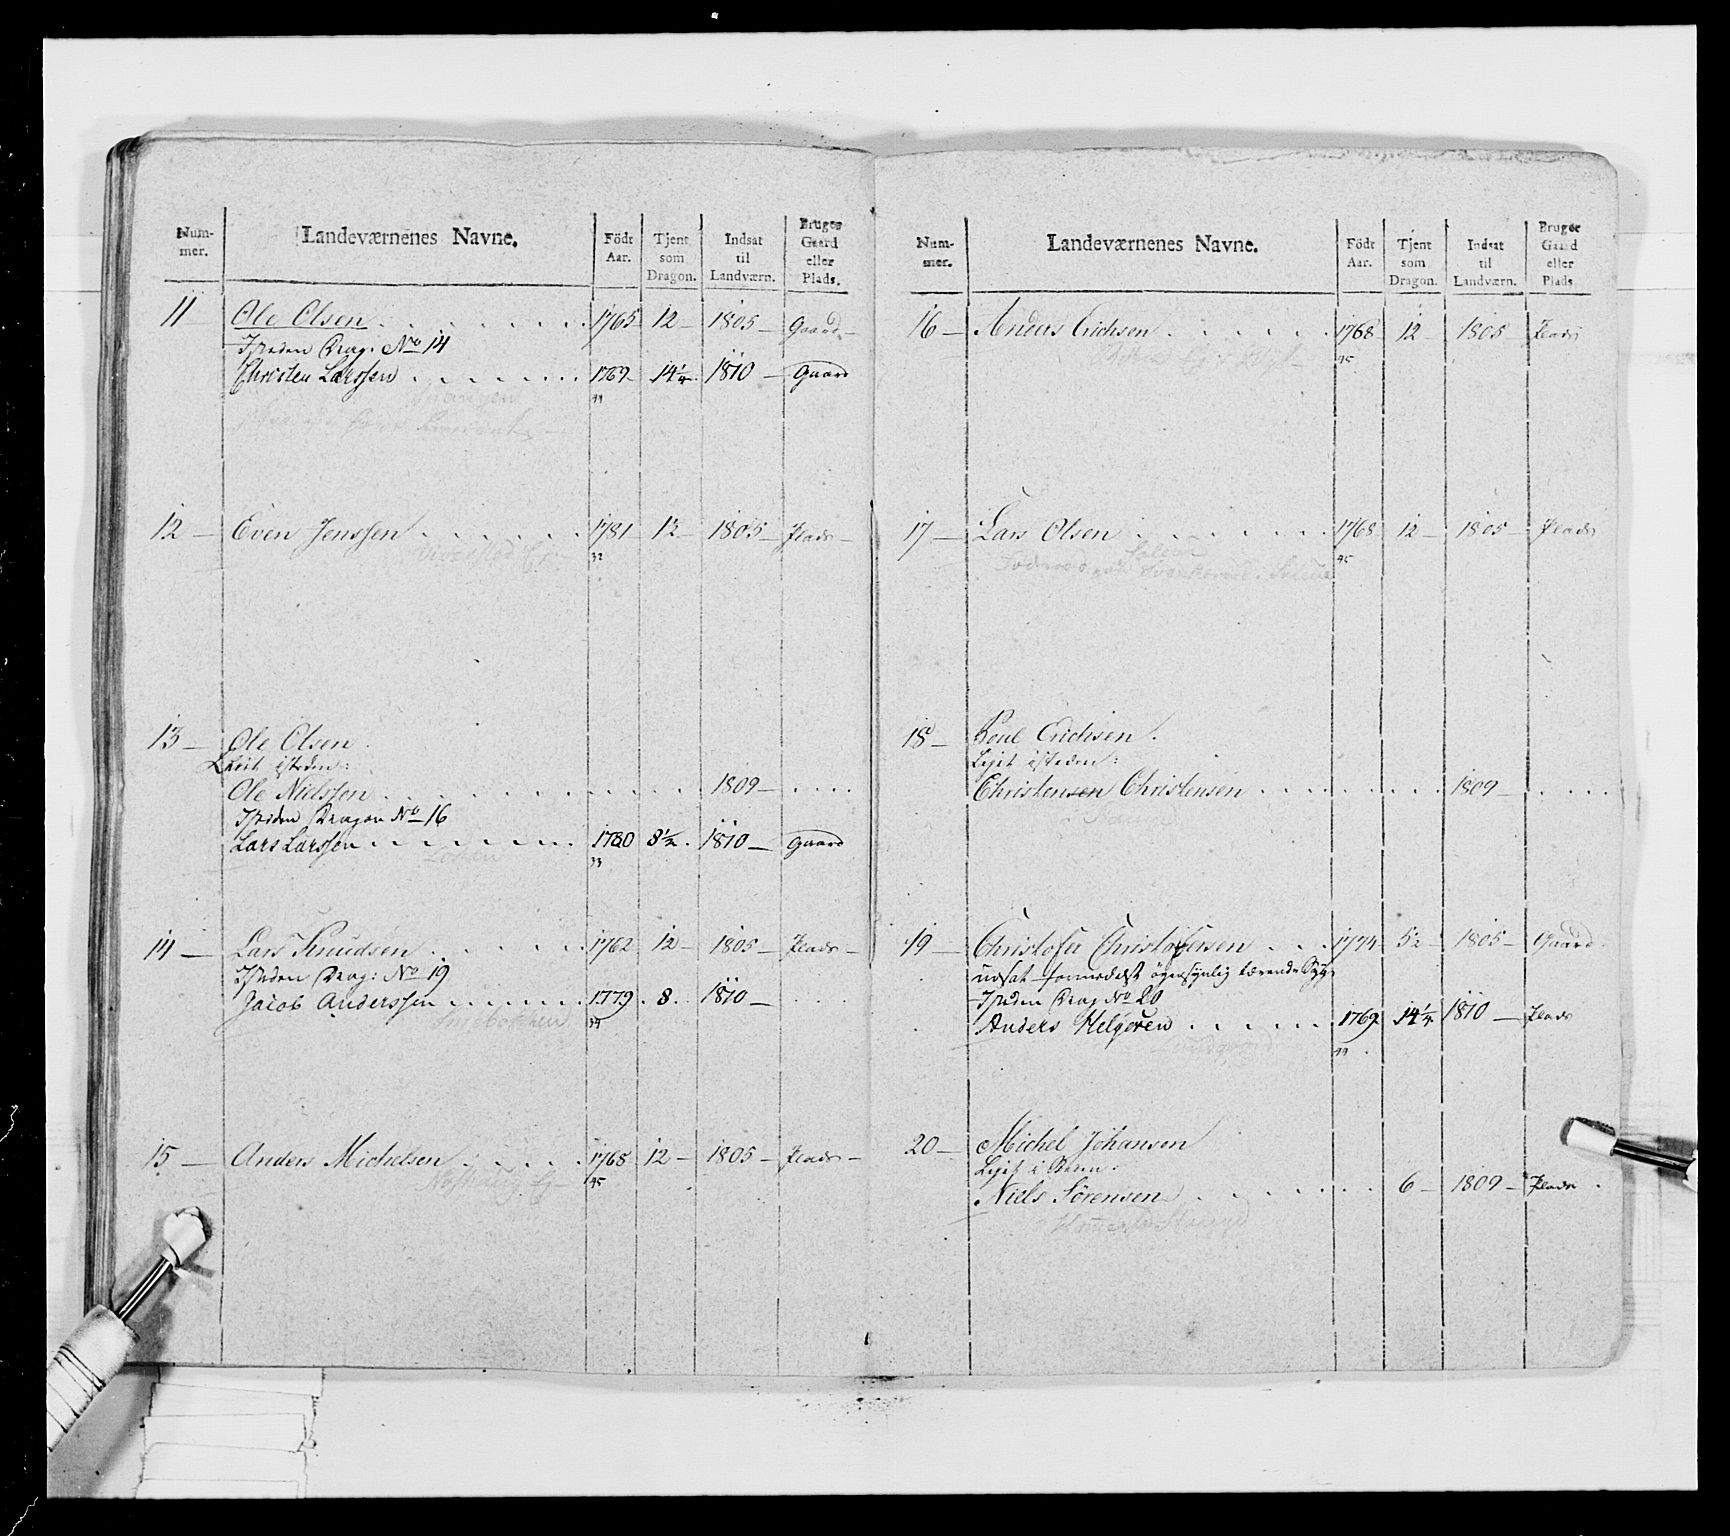 Num-mer. Landeværnenes Navne. Födt Aar. Tjent som Dragon. Indsat til Landværn. Bruger Gaard eller Plads.
11 Ole Olsen . . . . . . . 1765 12 – 1805 – Gaard –
Isteden Drag: No 14
Christen Larssen . . . . . . 1769 14¼ 1810 – Gaard
44
12 – Even Jenssen . . . . . . 1781 12 – 1805 – Plads –
32
13 – Ole Olsen.
isteden:
Ole Nielssen . . . . . . . . . 1809 – . . . .
Isteden Dragon No 16
Lars Larssen . . . . . . . 1780 8½ . 1810 – Gaard
33
14 – Lars Knudsen . . . . . . 1762 12 – 1805 – Plads –
Isteden Drag: No 19
Jacob Anderssen . . . . . . 1779 . 8 . 1810 – . . .
34
15 – Anders Michelsen . . . . . 1768 12 – 1805 – Plads –
45
Num-mer. Landeværnenes Navne. Födt Aar. Tjent som Dragon. Indsat til Landværn. Bruger Gaard eller Plads.
16 – Anders Erichsen . . . . . . 1768 12 – 1805 – Plads
45
17 – Lars Olsen . . . . . . . 1768 12 – 1805 – Plads
45
18 – Poul Erichsen .
isteden:
Christensen Christensen . . . . . . . . 1809 – . . . .
19 – Christofer Christofersen . . . 1774 5½ – 1805 – Gaard .
udsat formedelst öyensynlig tærende Syge
Isteden Drag No 20
Anders Helgesen . . . . . . 1769 14¼ 1810 – Plads
44
20 – Michel Johansen
Niels Sörensen . . . . . . . . 6 – 1809 – Plads .